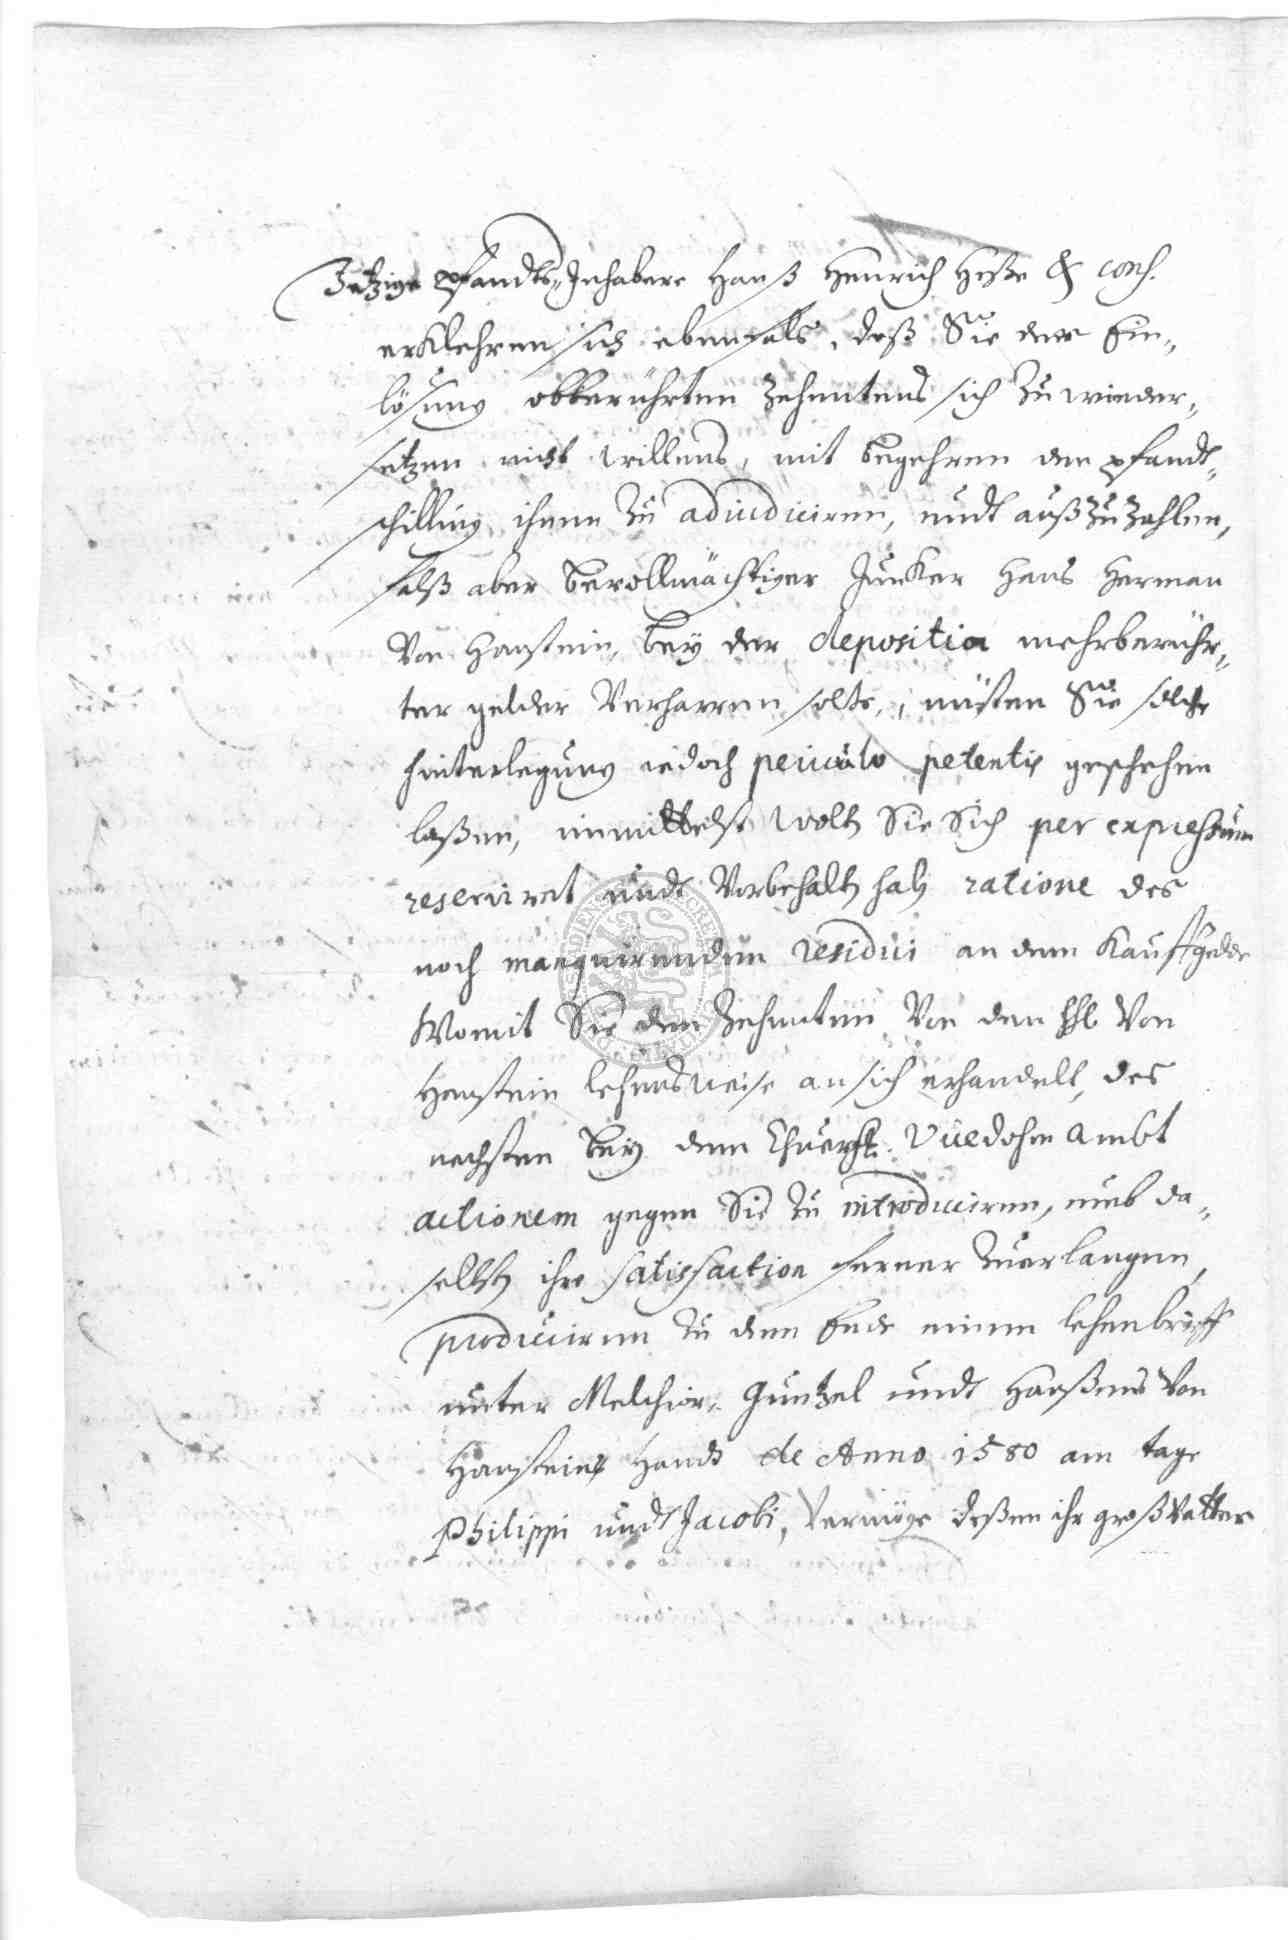 Jetzige Pfandts-Inhabere Hanß Henrich Heße & cons.
erklehren sich ebenfals, daß Sie der Ein-
lösung obberührten Zehentens sich zu wieder-
setzen nicht willens, mit begehren den pfandt-
schilling ihnen zu adiudiciren, undt außzuzahlen,
falß aber bevollmächtiger Juncker Hans Herman
Von Hanstein, bey der deposition mehrberühr-
ter gelder Verharren solte, müsten Sie solche
hinterlegung iedoch periculo petentis geschehen
laßen, inmittelst wolten Sie Sich per expressum
reserviret undt Vorbehalten haben ratione des
noch manquirenden residui an dem Kauffgelde
Womit Sie den Zehenten Von den Von
Hanstein lehensweise an sich erhandelt, des
nechsten bey dem Churfl. Vicedohm Ambt
actionem gegen Sie zu introduciren, und da-
selbst ihre satisfaction ferner zuerlangen,
produciren zu dem Ende einen lehenbrieff
unter Melchior, Guntzel undt Hanßens Von
Hanstein Handt de Anno 1580 am tage
Philippi undt Jacobi, Vermöge deßen ihr großvatter